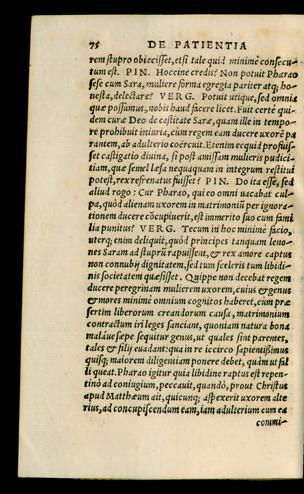 75 DE PATIENTIA
rem stupro obiecisset, etsi tale quid minimè consecu
tum est. PIN. Hoccine credis? Non potuit Pharao
sese cum Sara, muliere forma egregia pariter atq; ho-
nesta, delectare? VERG. Potuit utique, sed omnia
quæ possumus, nobis haud facere licet. Fuit certè qui
dem curæ Deo de castitate Saræ, quam ille in tempo-
re prohibuit iniuria, cùm regem eam ducere uxorẽ pa
rantem, ab adulterio coërcuit. Etenim ecquid profuis-
set castigatio diuina, si post amissam mulieris pudici-
tiam, quæ semel læsa nequaquam in integrum restitui
potest, rex refrenatus fuisset? PIN. Do ita esse, sed
aliud rogo: Cur Pharao, qui eo omni uacabat cul-
pa, quòd alienam uxorem in matrimoniũ per ignora-
tionem ducere cõcupiuerit, est immerito suo cum fami
lia punitus? VERG. Tecum in hoc minimè facio,
uterq; enim deliquit, quòd principes tanquam leno-
nes Saram ad stuprũ rapuissent, & rex amore captus
non connubij dignitatem, sed tum sceleris tum libidi-
nis societatem quæsisset. Quippe non decebat regem
ducere peregrinam mulierem uxorem, cuius & genus
& mores minimè omnium cognitos haberet, cùm præ
sertim liberorum creandorum causa, matrimonium
contractum iri leges sanciant, quoniam natura bona
maláue sæpe sequitur genus, ut quales sint parentes,
tales & filij euadant: qua in re iccirco sapientissimus
quisq; maiorem diligentiam ponere debet, quàm ut fal
li queat. Pharao igitur quia libidine raptus est repen-
tinò ad coniugium, peccauit, quandò, prout Christus
apud Matthæum ait, quicunq; aspexerit uxorem alte
rius, ad concupiscendum eam, iam adulterium cum ea
commi-